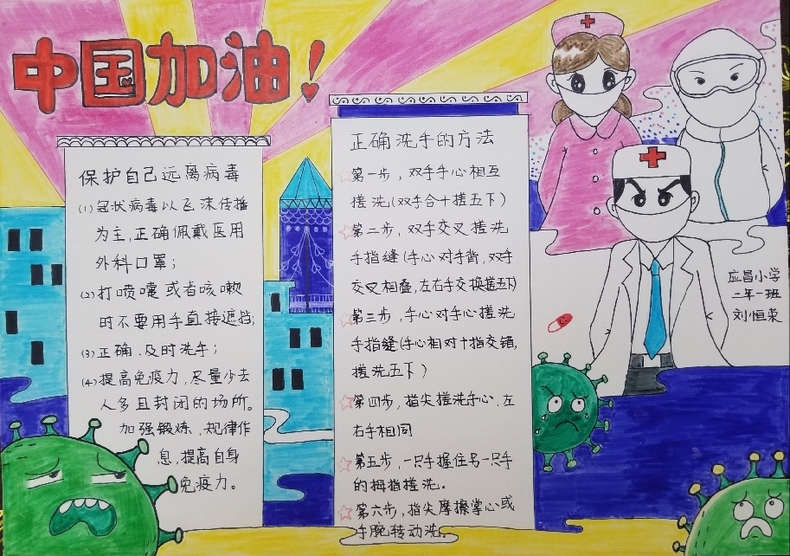 中国加油！
保护自己远离病毒
(1) 冠状病毒以飞沫传播
为主,正确佩戴医用
外科口罩；
(2) 打喷嚏或者咳嗽
时不要用手直接遮挡;
(3) 正确、及时洗手；
(4) 提高免疫力,尽量少去
人多且封闭的场所。
加强锻炼,规律作
息,提高自身
免疫力。
正确洗手的方法
第一步，双手手心相互
搓洗(双手合十搓五下)
第二步，双手交叉搓洗
手指缝(手心对手背,双手
交叉相叠,左右手交换搓五下)
第三步，手心对手心搓洗
手指缝(手心相对十指交错,
搓洗五下)
第四步，指尖搓洗手心,左
右手相同
第五步，一只手握住另一只手
的拇指搓洗。
第六步，指尖摩擦掌心或
手腕转动洗。
应昌小学
二年一班
刘恒荣